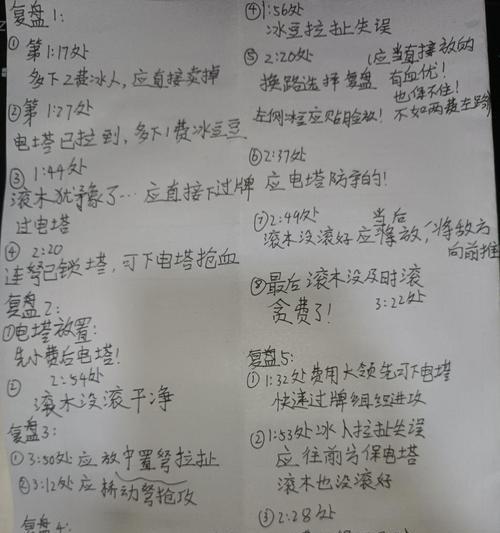 复盘1:
① 第1:17处
多下2费冰人，应直接卖掉
② 第1:27处
电塔已拉到，多下1费冰豆豆
③ 1:44处
滚木犹豫了…应直接下过牌
过电塔
④ 2:20
连弩已锁塔，可下电塔抢血
复盘2:
①电塔放置:
先小费后电塔!
② 2:54处
滚木没滚干净
复盘3:
①3:50处应放中置弩拉扯
②3:12处应桥动弩抢攻
复盘4:
④1:56处
冰豆拉扯失误
⑤ 2:20处
换路选择复盘
(应当直接放的
有血优!
也保不住!
不如两费左路
左侧冰豆应贴脸放!
⑥2:37处
应电塔防守的!
⑦2:49处
滚木没滚好应当后
将放，将敌方
向前推
⑧最后滚木没及时滚
贪费了! 3:22处
复盘5:
①1:32处费用大领先可下电塔
快速过牌组织进攻
②1:53处冰人拉扯失误
应往前点保电塔
滚木也没滚好
③2:28处